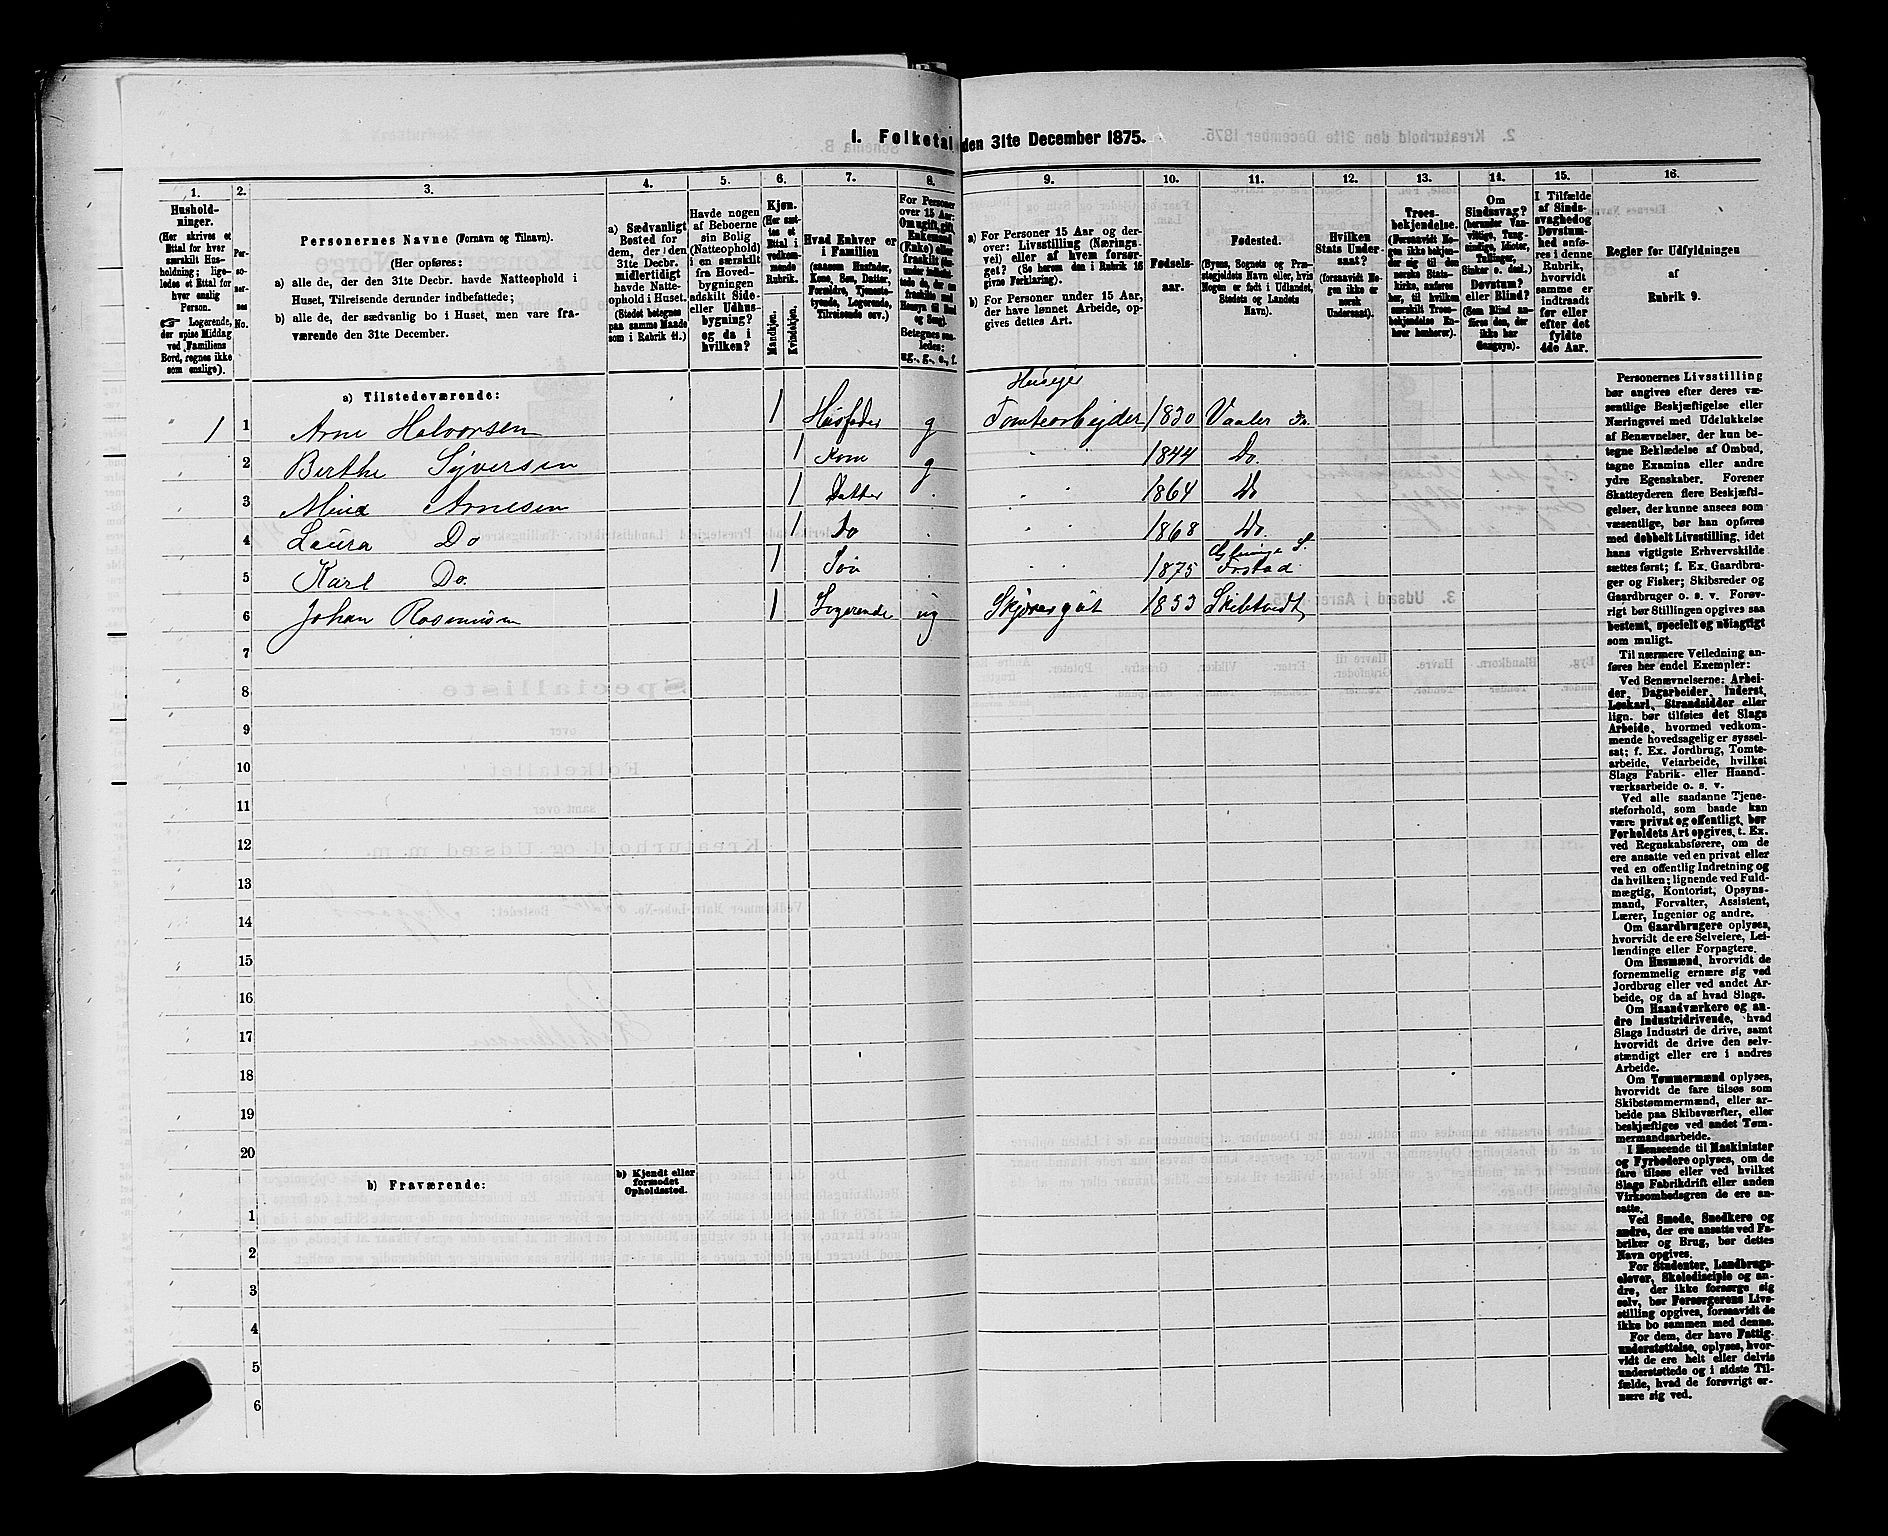 I. Folketal den 31te December 1875.
1. 2. 3. 4. 5. 6. 7. 8. 9. 10. 11. 12. 13. 14. 15. 16.
Husholdninger.
(Her skrives et Ettal for hver særskilt Husholdning; ligeledes et Ettal for hver enslig Person.
☞ Logerende, der spise Middag ved Familiens Bord, regnes ikke som enslige).
Personernes No.
Personernes Navne (Fornavn og Tilnavn).
(Her opføres:
a) alle de, der den 31te Decbr. havde Natteophold i
Huset, Tilreisende derunder indbefattede;
b) alle de, der sædvanlig bo i Huset, men vare fra-
værende den 31te December.
a) Sædvanligt Bosted for dem, der den 31te Decbr. midlertidigt havde Natteophold i Huset. (Stedet betegnes paa samme Maade som i Rubrik 11.)
Havde nogen af Beboerne sin Bolig (Natteophold) i en særskilt fra Hovedbygningen adskilt Side- eller Udhusbygning? og da i hvilken?
Kjøn.
(Her sættes et Ettal i vedkommende Rubrik.
Mandkjøn.
Kvindekjøn.
Hvad Enhver er i Familien
(saasom Husfader, Kone, Søn, Datter, Forældre, Tjenestetyende, Logerende, Tilreisende osv.)
For Personer over 15 Aar: Om ugift, gift, Enkemand (Enke) eller fraskilt
Betegnes saaledes: ug., g., e., f.
a) For Personer 15 Aar og derover: Livsstilling (Næringsvei) eller af hvem forsørget? (Se herom den i Rubrik 16 givne Forklaring).
b) For Personer under 15 Aar, der have lønnet Arbeide, opgives dettes Art.
Fødselsaar.
Fødested.
(Byens, Sognets og Præstegjeldets Navn eller, hvis Nogen er født i Udlandet, Stedets og Landets Navn).
Hvilken Stats Undersaat?
(forsaavidt Nogen ikke er norsk Undersaat).
Troesbekjendelse.
(Forsaavidt Nogen ikke bekjender sig til den norske Statskirke, anføres her, til hvilken særskilt Troesbekjendelse Enhver henhører).
Om Sindssvag? (herunder Vanvittige, Tungsindige, Idioter, Tullinger, Sinker o. desl.) Døvstum? eller Blind? (Som Blind anføres den, der ikke har Gangsyn).
I Tilfælde af Sindssvaghed og Døvstumhed anføres i denne Rubrik, hvorvidt samme er indtraadt før eller efter det fyldte 4de Aar.
Regler før Udfyldningen
af
Rubrik 9.
a) Tilstedeværende:
Huseier
1 1 Arne Halvorsen 1 Husfader g Tomtearbejder 1830 Vaaler
2 Berthe Syversen 1 Kone g 1844 Do.
3 Arnesen 1 Datter 1864 Do
4 Laura Do 1 Do 1868 Do.
5 Karl Do. 1 Søn 1875
6 Johan Rasmusen 1 Logerende ug 1853 Skibtvedt
7
8
9
10
11
12
13
14
15
16
17
18
19
20
b) Fraværende:
b) Kjendt eller formodet Opholdssted.
1
2
3
4
5
6
Personernes Livsstilling
bør angives efter deres væ-
sentlige Beskjæftigelse eller
Næringsvei med Udelukkelse
af Benævnelser, der kun be-
tegne Beklædelse af Ombud,
tagne Examina eller andre
ydre Egenskaber. Forener
Skatteyderen flere Beskjæfti-
gelser, der kunne ansees som
væsentlige, bør han opføres
med dobbelt Livsstilling, idet
hans vigtigste Erhvervskilde
sættes først; f. Ex. Gaardbru-
ger og Fisker; Skibsreder og
Gaardbruger o. s. v. Forøv-
rigt bør Stillingen opgives saa
bestemt, specielt og nøiagtigt
som muligt.
Til nærmere Veiledning an-
føres her endel Exempler:
Ved Benævnelserne: Arbei-
der, Dagarbeider, Inderst,
Løskarl, Strandsidder eller
lign. bør tilføies det Slags
Arbeide, hvormed vedkom-
mende hovedsagelig er syssel-
sat; f. Ex. Jordbrug, Tomte-
arbeide, Veiarbeide, hvilket
Slags Fabrik- eller Haand-
værksarbeide o. s. v.
Ved alle saadanne Tjene-
steforhold, som baade kan
være privat og offentligt, bør
Forholdets Art opgives, t. Ex.
ved Regnskabsførere, om de
ere ansatte ved en privat eller
ved en offentlig Indretning og
da hvilken; lignende ved Fuld-
mægtig, Kontorist, Opsyns-
mand, Forvalter, Assistent,
Lærer, Ingeniør og andre.
Om Gaardbrugere oplyses,
hvorvidt de ere Selveiere, Lei-
lændinge eller Forpagtere.
Om Husmænd, hvorvidt de
fornemmelig ernære sig ved
Jordbrug eller ved andet Ar-
beide, og da af hvad Slags.
Om Haandværkere og an-
dre Industridrivende, hvad
Slags Industri de drive, samt
hvorvidt de drive den selv-
stændigt eller ere i andres
Arbeide.
Om Tømmermænd oplyses,
hvorvidt de fare tilsøs som
Skibstømmermænd, eller ar-
beide paa Skibsværfter, eller
beskjæftiges ved andet Tøm-
mermandsarbeide.
I Henseende til Maskinister
og Fyrbødere oplyses, om de
fare tilsøs eller ved hvilket
Slags Fabrikdrift eller anden
Virksomhedsgren de ere an-
satte.
Ved Smede, Snedkere og
andre, der ere ansatte ved Fa-
briker og Brug, bør dettes
Navn opgives.
For Studenter, Landbrugs-
elever, Skoledisciple og an-
dre, der ikke forsørge sig
selv, bør Forsørgerens Livs-
stilling opgives, forsaavidt de
ikke bo sammen med denne.
For dem, der have Fattig-
understøttelse, oplyses, hvor-
vidt de ere helt eller delvis
understøttede og i sidste Til-
fælde, hvad de forøvrigt er-
nære sig ved.